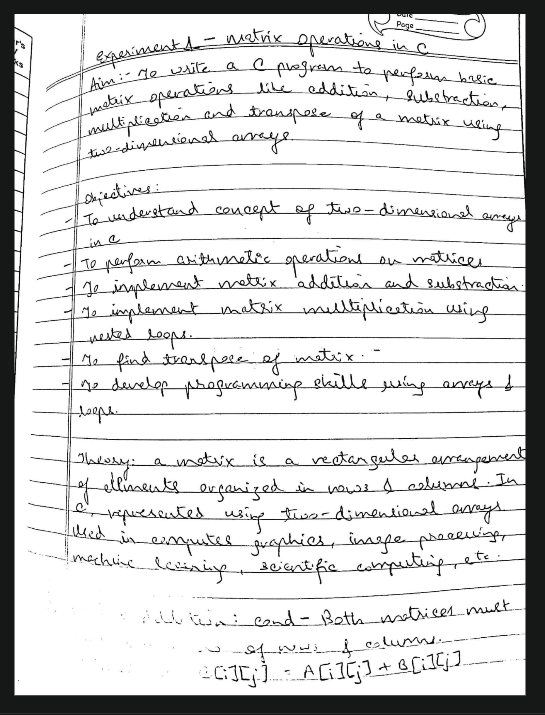 Date
Page
Experiment 1 - matrix operations in C
Aim:- To write a C program to perform basic
matrix operations like addition, substraction,
multiplication and transpose of a matrix using
two-dimensional arrays.
Objectives:
- To understand concept of two-dimensional arrays
in C
- To perform arithmetic operations on matrices
- To implement matrix addition and substraction.
- To implement matrix multiplication using
nested loops.
- To find transpose of matrix.
- To develop programming skills using arrays &
loops.
Theory: a matrix is a rectangular arrangement
of elements organized in rows & columns. In
C, represented using two-dimensional arrays
Used in computer graphics, image processing,
machine learning, scientific computing, etc.
Addition: cond - Both matrices must
of rows & columns.
C[i][j] = A[i][j] + B[i][j]